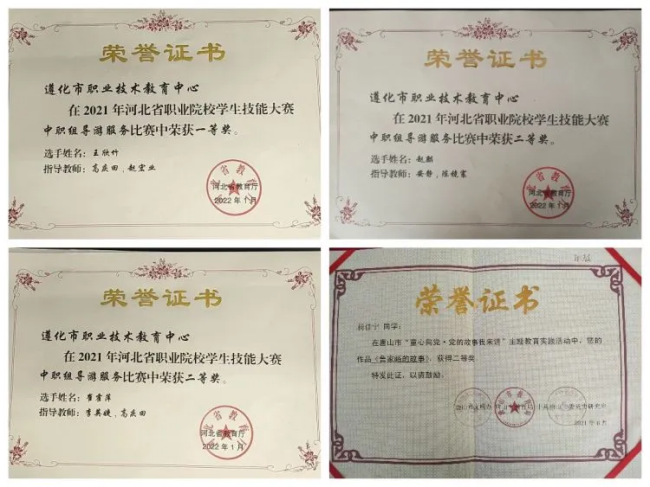 荣誉证书
遵化市职业技术教育中心
在2021年河北省职业院校学生技能大赛
中职组导游服务比赛中荣获一等奖。
选手姓名：王欣竹
指导教师：高庆田、赵宏业
河北省教育厅
2022年1月
荣誉证书
遵化市职业技术教育中心
在2021年河北省职业院校学生技能大赛
中职组导游服务比赛中荣获二等奖。
选手姓名：赵麒
指导教师：安静、张镜寰
河北省教育厅
2022年1月
荣誉证书
遵化市职业技术教育中心
在2021年河北省职业院校学生技能大赛
中职组导游服务比赛中荣获二等奖。
选手姓名：崔雪萍
指导教师：李英婕、高庆田
河北省教育厅
2022年1月
荣誉证书
同学：
在唐山市“童心向党·党的故事我来讲”主题教育实践活动中，您的
获得二等奖
特发此证，以资鼓励。
2021年6月